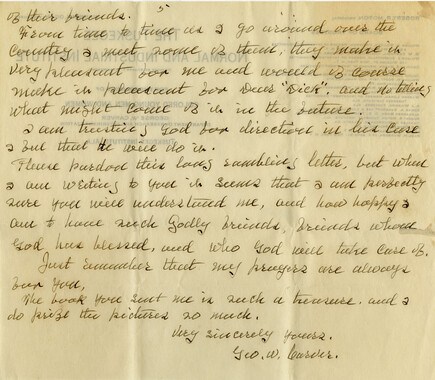 of their friends. 5
From time to time as I go around over the
Country I meet some of them, they make it
very pleasant for me and would of course
make it pleasant for Dear "Dick", and no telling
what might come of it in the future.
I am trusting God for direction in his case
I but that he will do it.
Please pardon this long rambling letter, but when
I am writing to you it seems that I am perfectly
sure you will understand me, and how happy I
am to have such Godly friends, friends whom
God has blessed, and who God will take care of.
Just remember that my prayers are always
for you,
The book you sent me is such a treasure. and I
do prize the pictures so much.
Very Sincerely yours.
Geo. W. Carver.